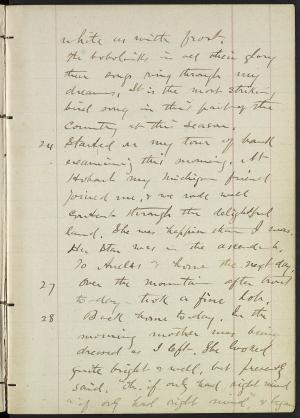 white as with frost.
The bobolinks in all their glory
their songs ring through my
dreams. It is the most striking
bird song in this part of the
country at this season.
24 Started on my tour of bank
examining this morning. At
Hobart my Michigan friend
joined me, & we rode well
content through the delightful
land. She was happier than I was.
Her star was in the ascendant.
To Andes & home the next day.
27 Over the mountain after trout
to-day - took a fine lot.
28 Back home to-day. In the
morning mother was being
dressed as I left. She looked
quite bright & well, but presently
said, Oh if only had right mind
if only had right mind, & began